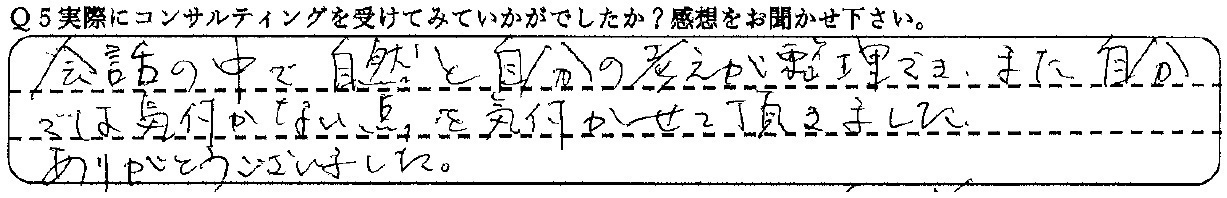 Q5実際にコンサルティングを受けてみていかがでしたか？感想をお聞かせ下さい。
会話の中で自然と自分の考えが整理でき、また自分
では気付かない点を気付かせて頂きました。
ありがとうございました。